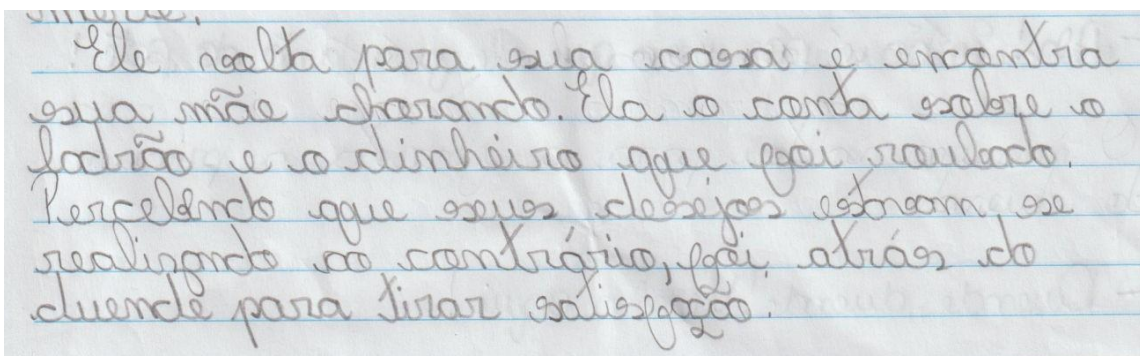 Ele volta para sua casa e encontra
sua mãe chorando. Ela o conta sobre o
ladrão e o dinheiro que foi roubado.
Percebendo que seus desejos estavam se
realizando ao contrário, foi atrás do
duende para tirar satisfação.